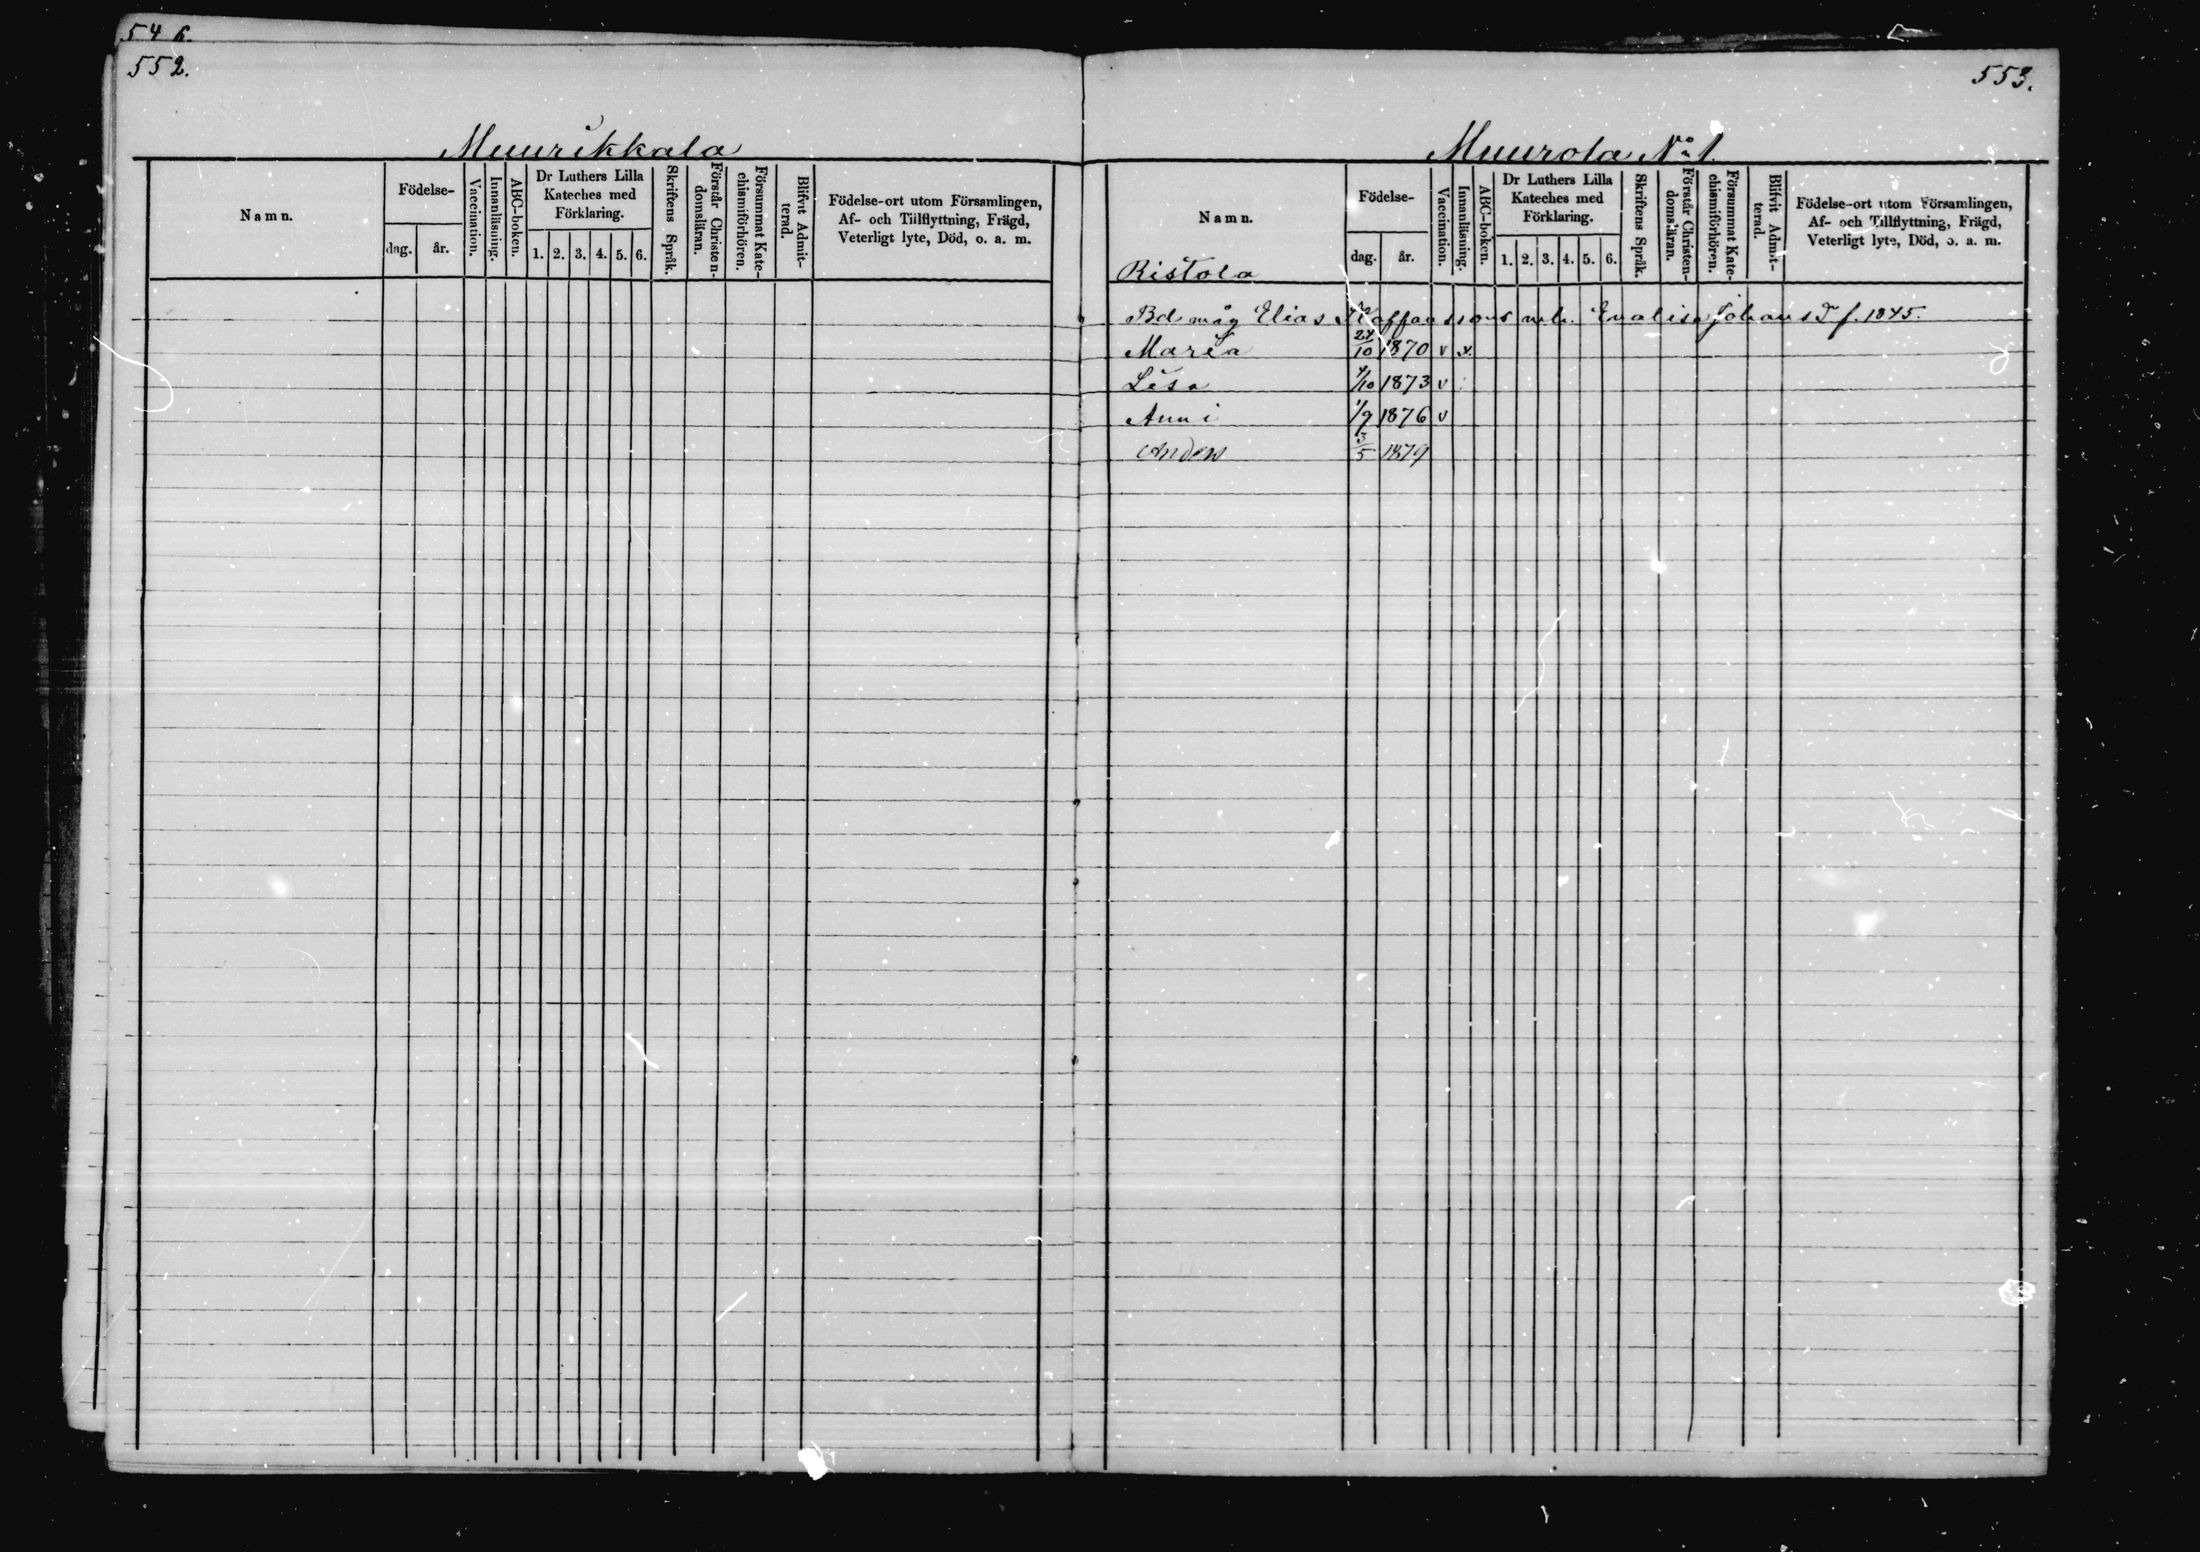 546.
552.
Muurikkala
Namn.
Födelse-
dag.
år.
Vaccination.
Innanläsning.
ABC-boken.
Dr Luthers Lilla
Kateches med
Förklaring.
1. 2. 3. 4. 5. 6.
Skriftens Språk.
Förstår Christen-
domsläran.
Försummat Kate-
chismiförhören.
Blifvit Admit-
terad.
Födelse-ort utom Församlingen,
Af- och Tillflyttning, Frägd,
Veterligt lyte, Död, o. a. m.
553.
Muurola No 1.
Namn.
Födelse-
dag.
år.
Vaccination.
Innanläsning.
ABC-boken.
Dr Luthers Lilla
Kateches med
Förklaring.
1. 2. 3. 4. 5. 6.
Skriftens Språk.
Förstår Christen-
domsläran.
Försummat Kate-
chismiförhören.
Blifvit Admit-
terad.
Födelse-ort utom Församlingen,
Af- och Tillflyttning, Frägd,
Veterligt lyte, Död, o. a. m.
Ristola
Bd måg Elias Evalisa Johans D f. 1845.
Maria 24/10 1870 v x.
Lisa 4/10 1873 v
Anni 1/9 1876 v
Anders 3/5 1879